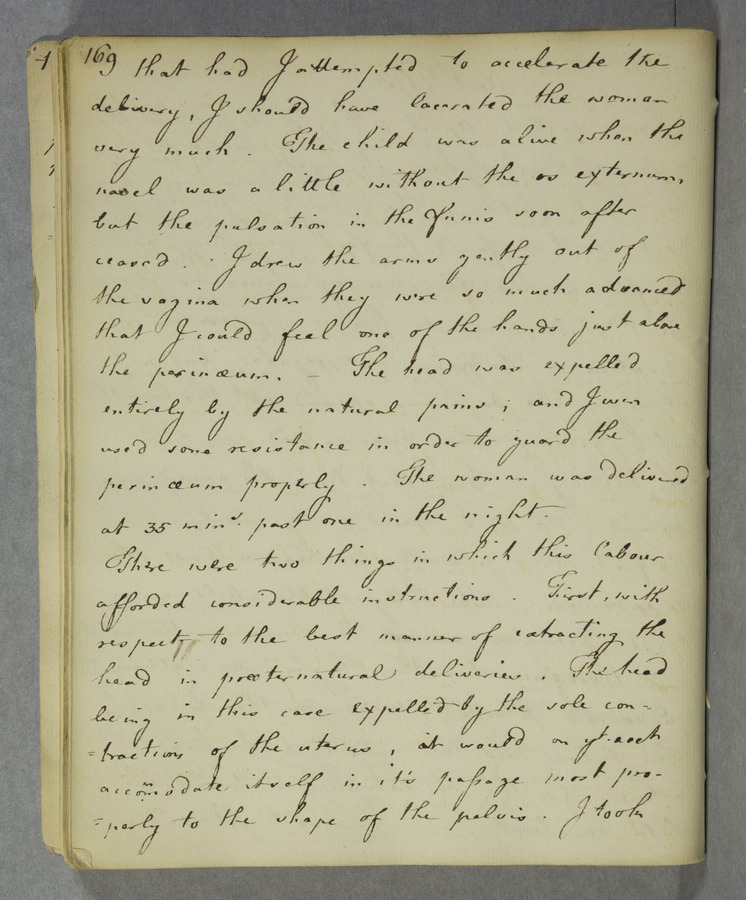 169 that had I attempted to accelerate the
delivery, I should have lacerated the woman
very much. The child was alive when the
navel was a little without the os externum,
but the pulsation in the Funis soon after
ceased. I drew the arms gently out of
the vagina when they were so much advanced
that I could feel one of the hands just above
the perinæum. – The head was expelled
entirely by the natural pains; and I even
used some resistance in order to guard the
perinæum properly. The woman was delivered
at 35 mins. past one in the night.
There were two things in which this labour
afforded considerable instructions. First, with
respect to the best manner of extracting the
head in præternatural deliveries. The head
being in this case expelled by the sole con-
=tractions of the uterus, it would on yt. acct
accom̄odate itself in it's passage most pro-
=perly to the shape of the pelvis. I took